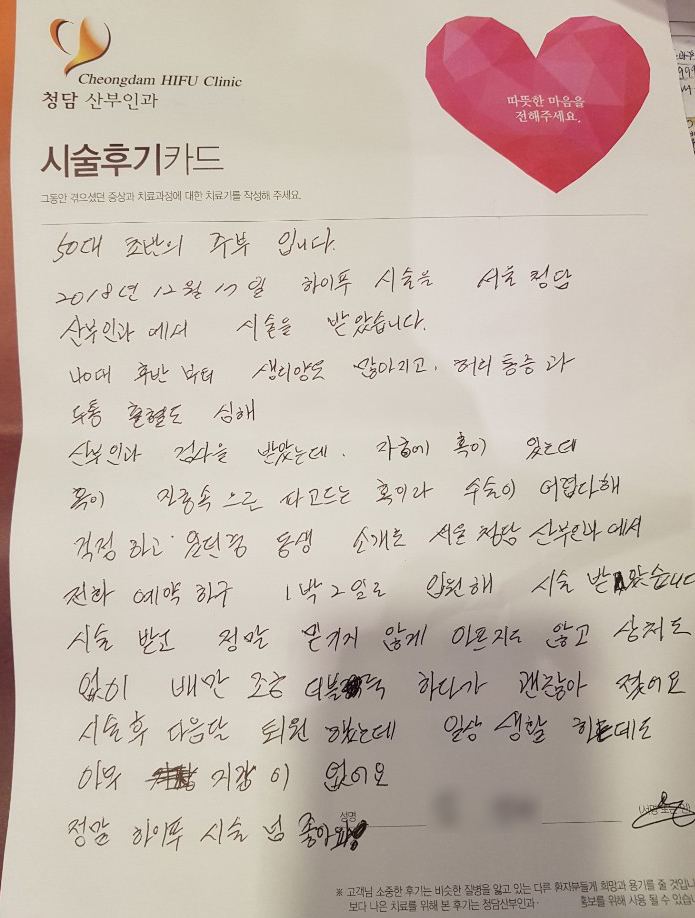 Cheongdam HIFU Clinic
청담 산부인과
따뜻한 마음을
전해주세요.
시술후기카드
그동안 겪으셨던 증상과 치료과정에 대한 치료기를 작성해 주세요.
50대 초반의 주부 입니다.
2018년 12월 17일 하이푸 시술을 서울 청담
산부인과 에서 시술을 받았습니다.
40대 후반 부터 생리양도 많아지고. 허리통증과
두통 출혈도 심해
산부인과 검사을 받았는데. 자궁에 혹이 있는데
혹이 자궁속 으론 파고드는 혹이라 수술이 어렵다해
걱정 하고 있던중 동생 소개로 서울 청담 산부인과 에서
전화 예약 하구 1박2일로 입원해 시술 받았습니다
시술 받고 정말 믿기지 않게 아픈지도 않고 상처도
없이 배만 조금 더부룩 하다가 괜찮아 졌어요
시술후 다음날 퇴원 했는데 일상 생활 하는데도
아무 지장 이 없어요
성명
정말 하이푸 시술 넘 좋아요
※ 고객님 소중한 후기는 비슷한 질병을 앓고 있는 다른 환자분들께 희망과 용기를 줄 것입니
보다 나은 치료를 위해 본 후기는 청담산부인과· 홍보를 위해 사용 될 수 있습